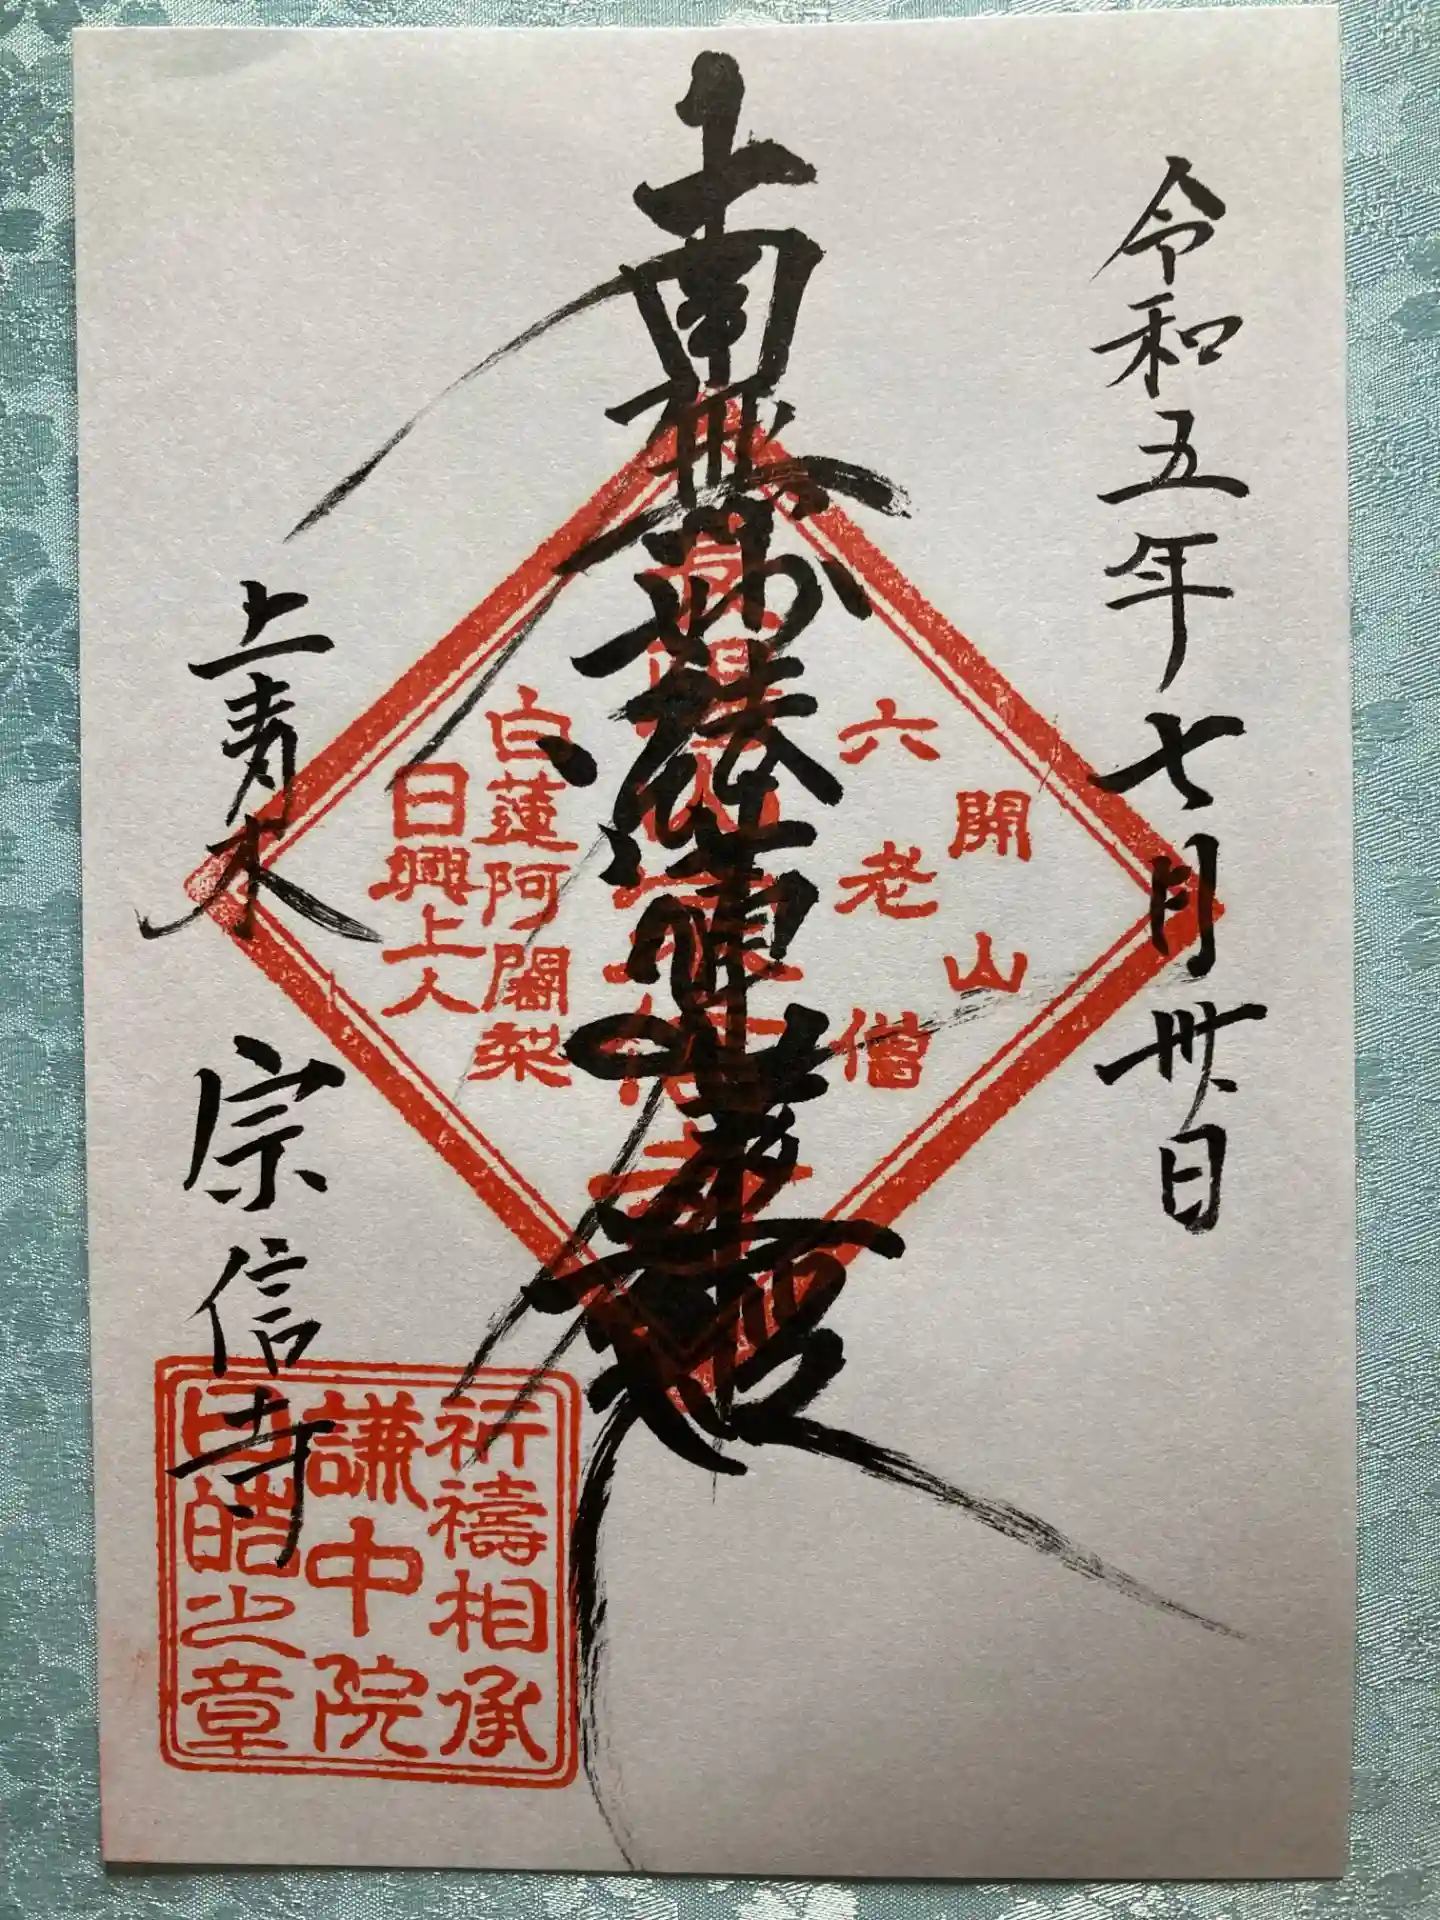 令和五年七月卅日
開山
六老僧
南無妙法蓮華経
白蓮阿闍梨
日興上人
上青木
宗信寺
祈禱相承
謙中院
日皓之章